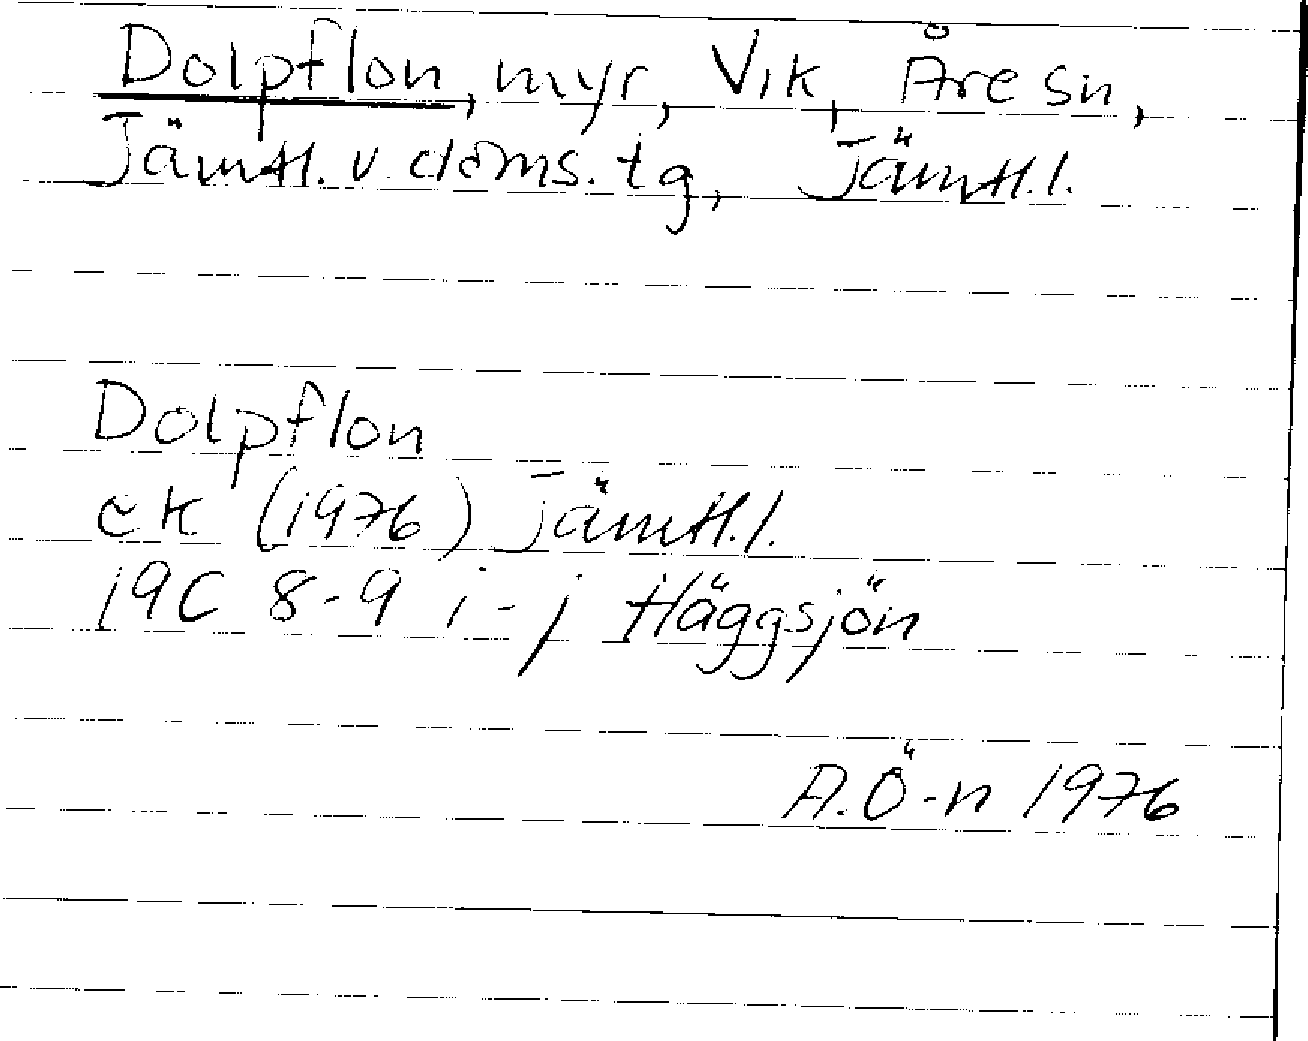 Dolpflon, myr, Vik, Åre sn,
Jämtl. v. doms. tg, Jämtl. l.
Dolpflon
ek (1976) Jämtl. l.
19C 8-9 i-j Häggsjön
A. Ö-n 1976